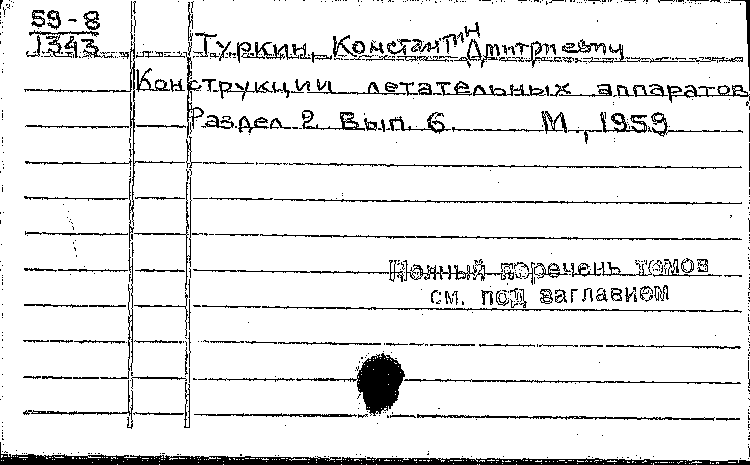 59-8
1343
Туркин, Константин Дмитриевич
Конструкции летательных аппаратов
Раздел 2 Вып. 6. М., 1959
Полный перечень томов
см. под заглавием